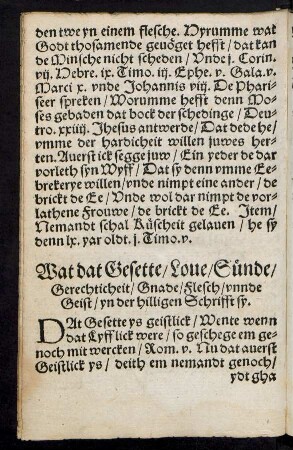 den twe yn einem flesche. Dyrumme wat
Godt thosamende geuöget hefft / dat kan
de Minsche nicht scheden / Vnde j. Corin.
vij. Hebre. ix. Timo. iij. Ephe. v. Gala. v.
Marci x. vnde Johannis viij. De Phari-
seer spreken / Worumme hefft denn Mo-
ses gebaden dat bock der schedinge / Deu-
tro. xxiiij. Jhesus antwerde / Dat dede he /
ymme der hardicheit willen juwes her-
ten. Auerst ick segge juw / Ein yeder de dar
vorleth syn Wyff / Dat sy denn ymme Ee-
brekerye willen / vnde nimpt eine ander / de
brickt de Ee / Vnde wol dar nimpt de vor-
lathene Frouwe / de brickt de Ee. Item /
Nemandt schal Küscheit gelauen / he sy
denn lx. yar oldt. j. Timo. v.
Wat dat Gesette / Loue / Sünde /
Gerechticheit / Gnade / Flesch / vnnde
Geist / yn der hilligen Schrifft sy.
DAt Gesette ys geistlick / Wente wenn
dat Lyfflick were / so geschege em ge-
noch mit wercken / Rom. v. Nu dat auerst
Geistlick ys / deith em nemandt genoch /
ydt gha